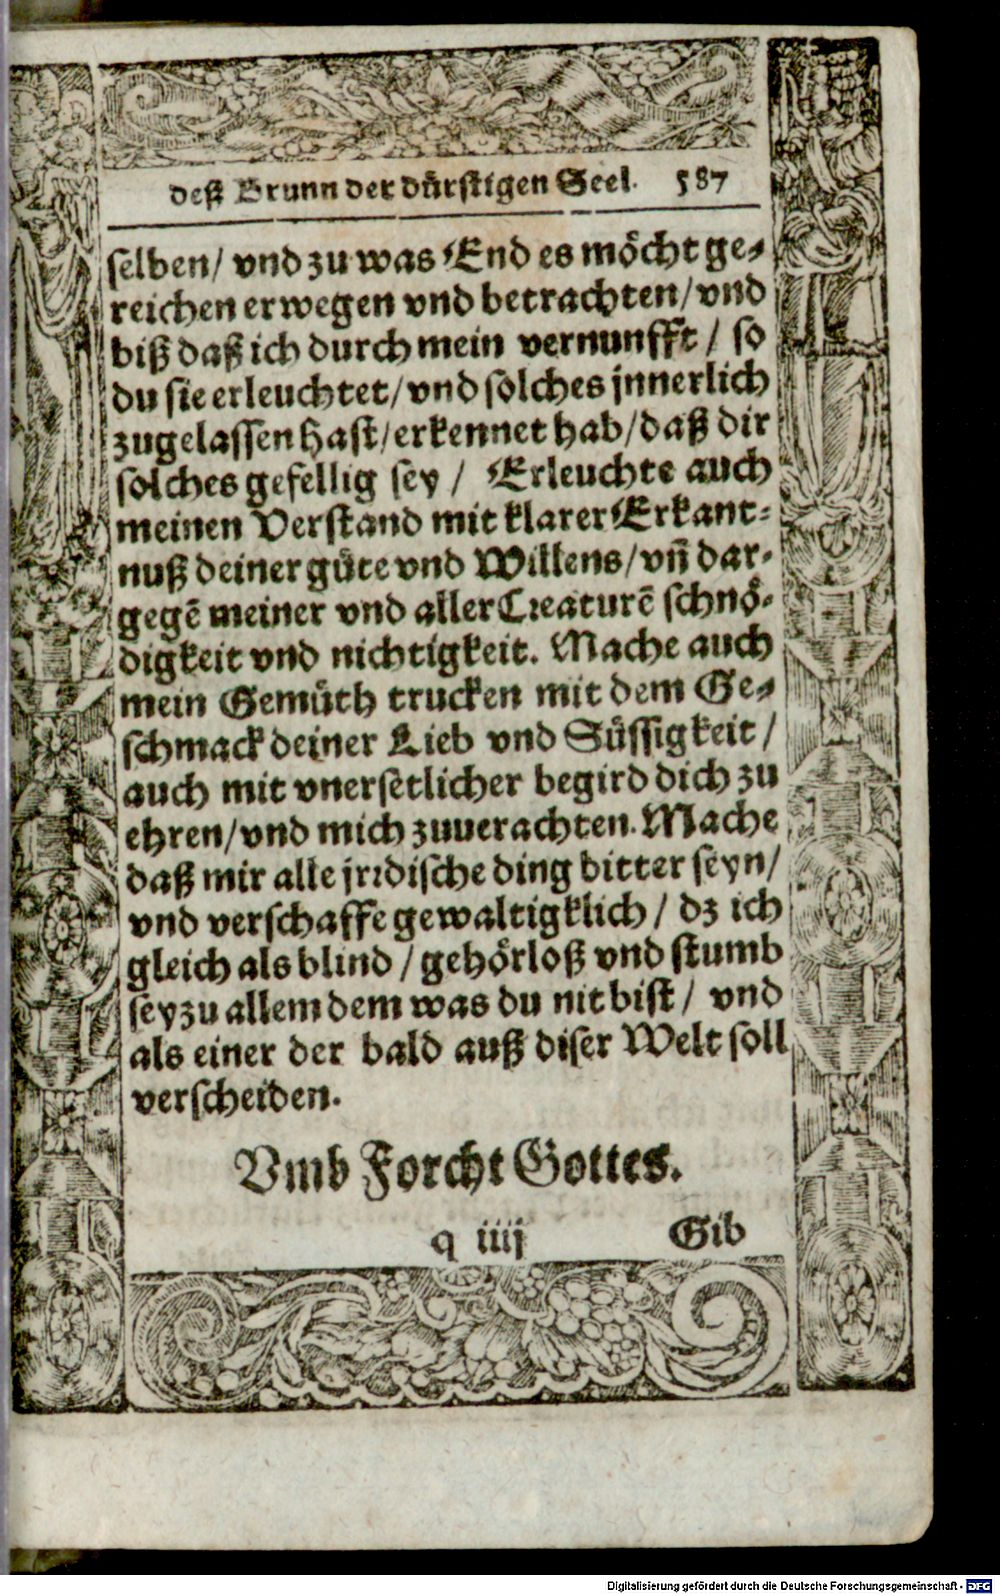 deß Brunn der dürstigen Seel. 587
selben/ vnd zu was End es möcht ge-
reichen erwegen vnd betrachten/ vnd
biß daß ich durch mein vernunfft / so
du sie erleuchtet/ vnd solches jnnerlich
zugelassen hast/ erkennet hab/ daß dir
solches gefellig sey / Erleuchte auch
meinen Verstand mit klarer Erkant-
nuß deiner güte vnd Willens/ vñ dar-
gegẽ meiner vnd aller Creaturẽ schnö-
digkeit vnd nichtigkeit. Mache auch
mein Gemüth trucken mit dem Ge-
schmack deiner Lieb vnd Süssigkeit /
auch mit vnersetlicher begird dich zu
ehren/ vnd mich zuuerachten. Mache
daß mir alle jrrdische ding bitter seyn/
vnd verschaffe gewaltigklich / dz ich
gleich als blind / gehörloß vnd stumb
sey zu allem dem was du nit bist / vnd
als einer der bald auß diser Welt soll
verscheiden.
Vmb Forcht Gottes.
q iiij Gib
Digitalisierung gefördert durch die Deutsche Forschungsgemeinschaft - DFG